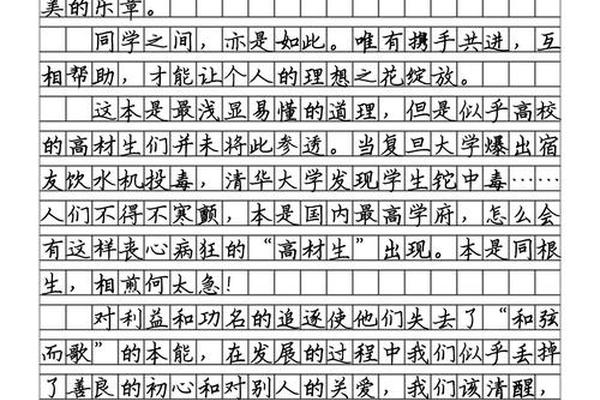 美的乐章。
同学之间，亦是如此。唯有携手共进，互
相帮助，才能让个人的理想之花绽放。
这本是最浅显易懂的道理，但是似乎高校
的高材生们并未将此参透。当复旦大学爆出宿
友饮水机投毒，清华大学发现学生铊中毒……
人们不得不寒颤，本是国内最高学府，怎么会
有这样丧心病狂的“高材生”出现。本是同根
生，相煎何太急！
对利益和功名的追逐使他们失去了“和弦
而歌”的本能，在发展的过程中我们似乎丢掉
了善良的初心和对别人的关爱，我们该清醒，